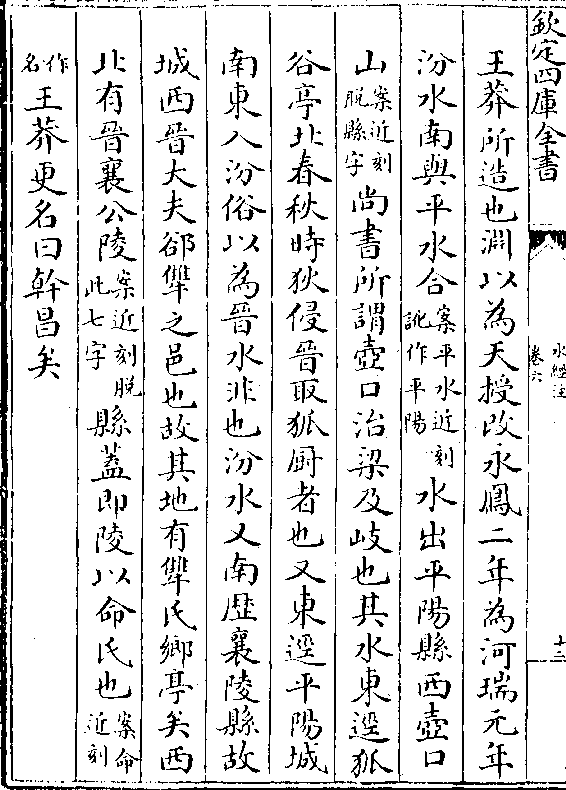 欽定四庫全書
水經注
卷六
十三
王莽所造也淵以為天授改永鳳二年為河瑞元年
汾水南與平水合案平水近刻訛作平陽水出平陽縣西壺口
山案近刻脱縣字尚書所謂壺口治梁及岐也其水東逕狐
谷亭北春秋時狄侵晉取狐厨者也又東逕平陽城
南東入汾俗以為晉水非也汾水又南歴襄陵縣故
城西晉大夫郤犨之邑也故其地有犨氏鄉亭矣西
北有晉襄公陵案近刻脱此七字縣蓋即陵以命氏也案命近刻
作名王莽更名曰幹昌矣